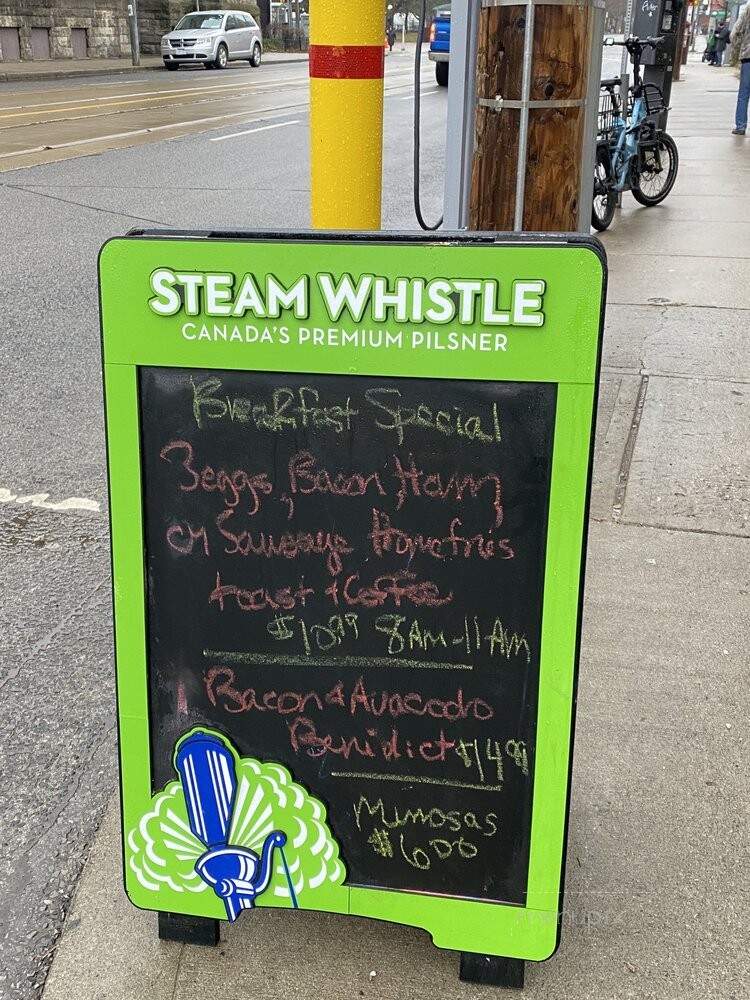 STEAM WHISTLE
CANADA'S PREMIUM PILSNER
Breakfast Special
3eggs, Bacon, Ham,
or Sausage Homefries
toast & Coffee
$10.99 8AM-11AM
Bacon & Avacodo
Benidict $14.99
Mimosas
$6.00